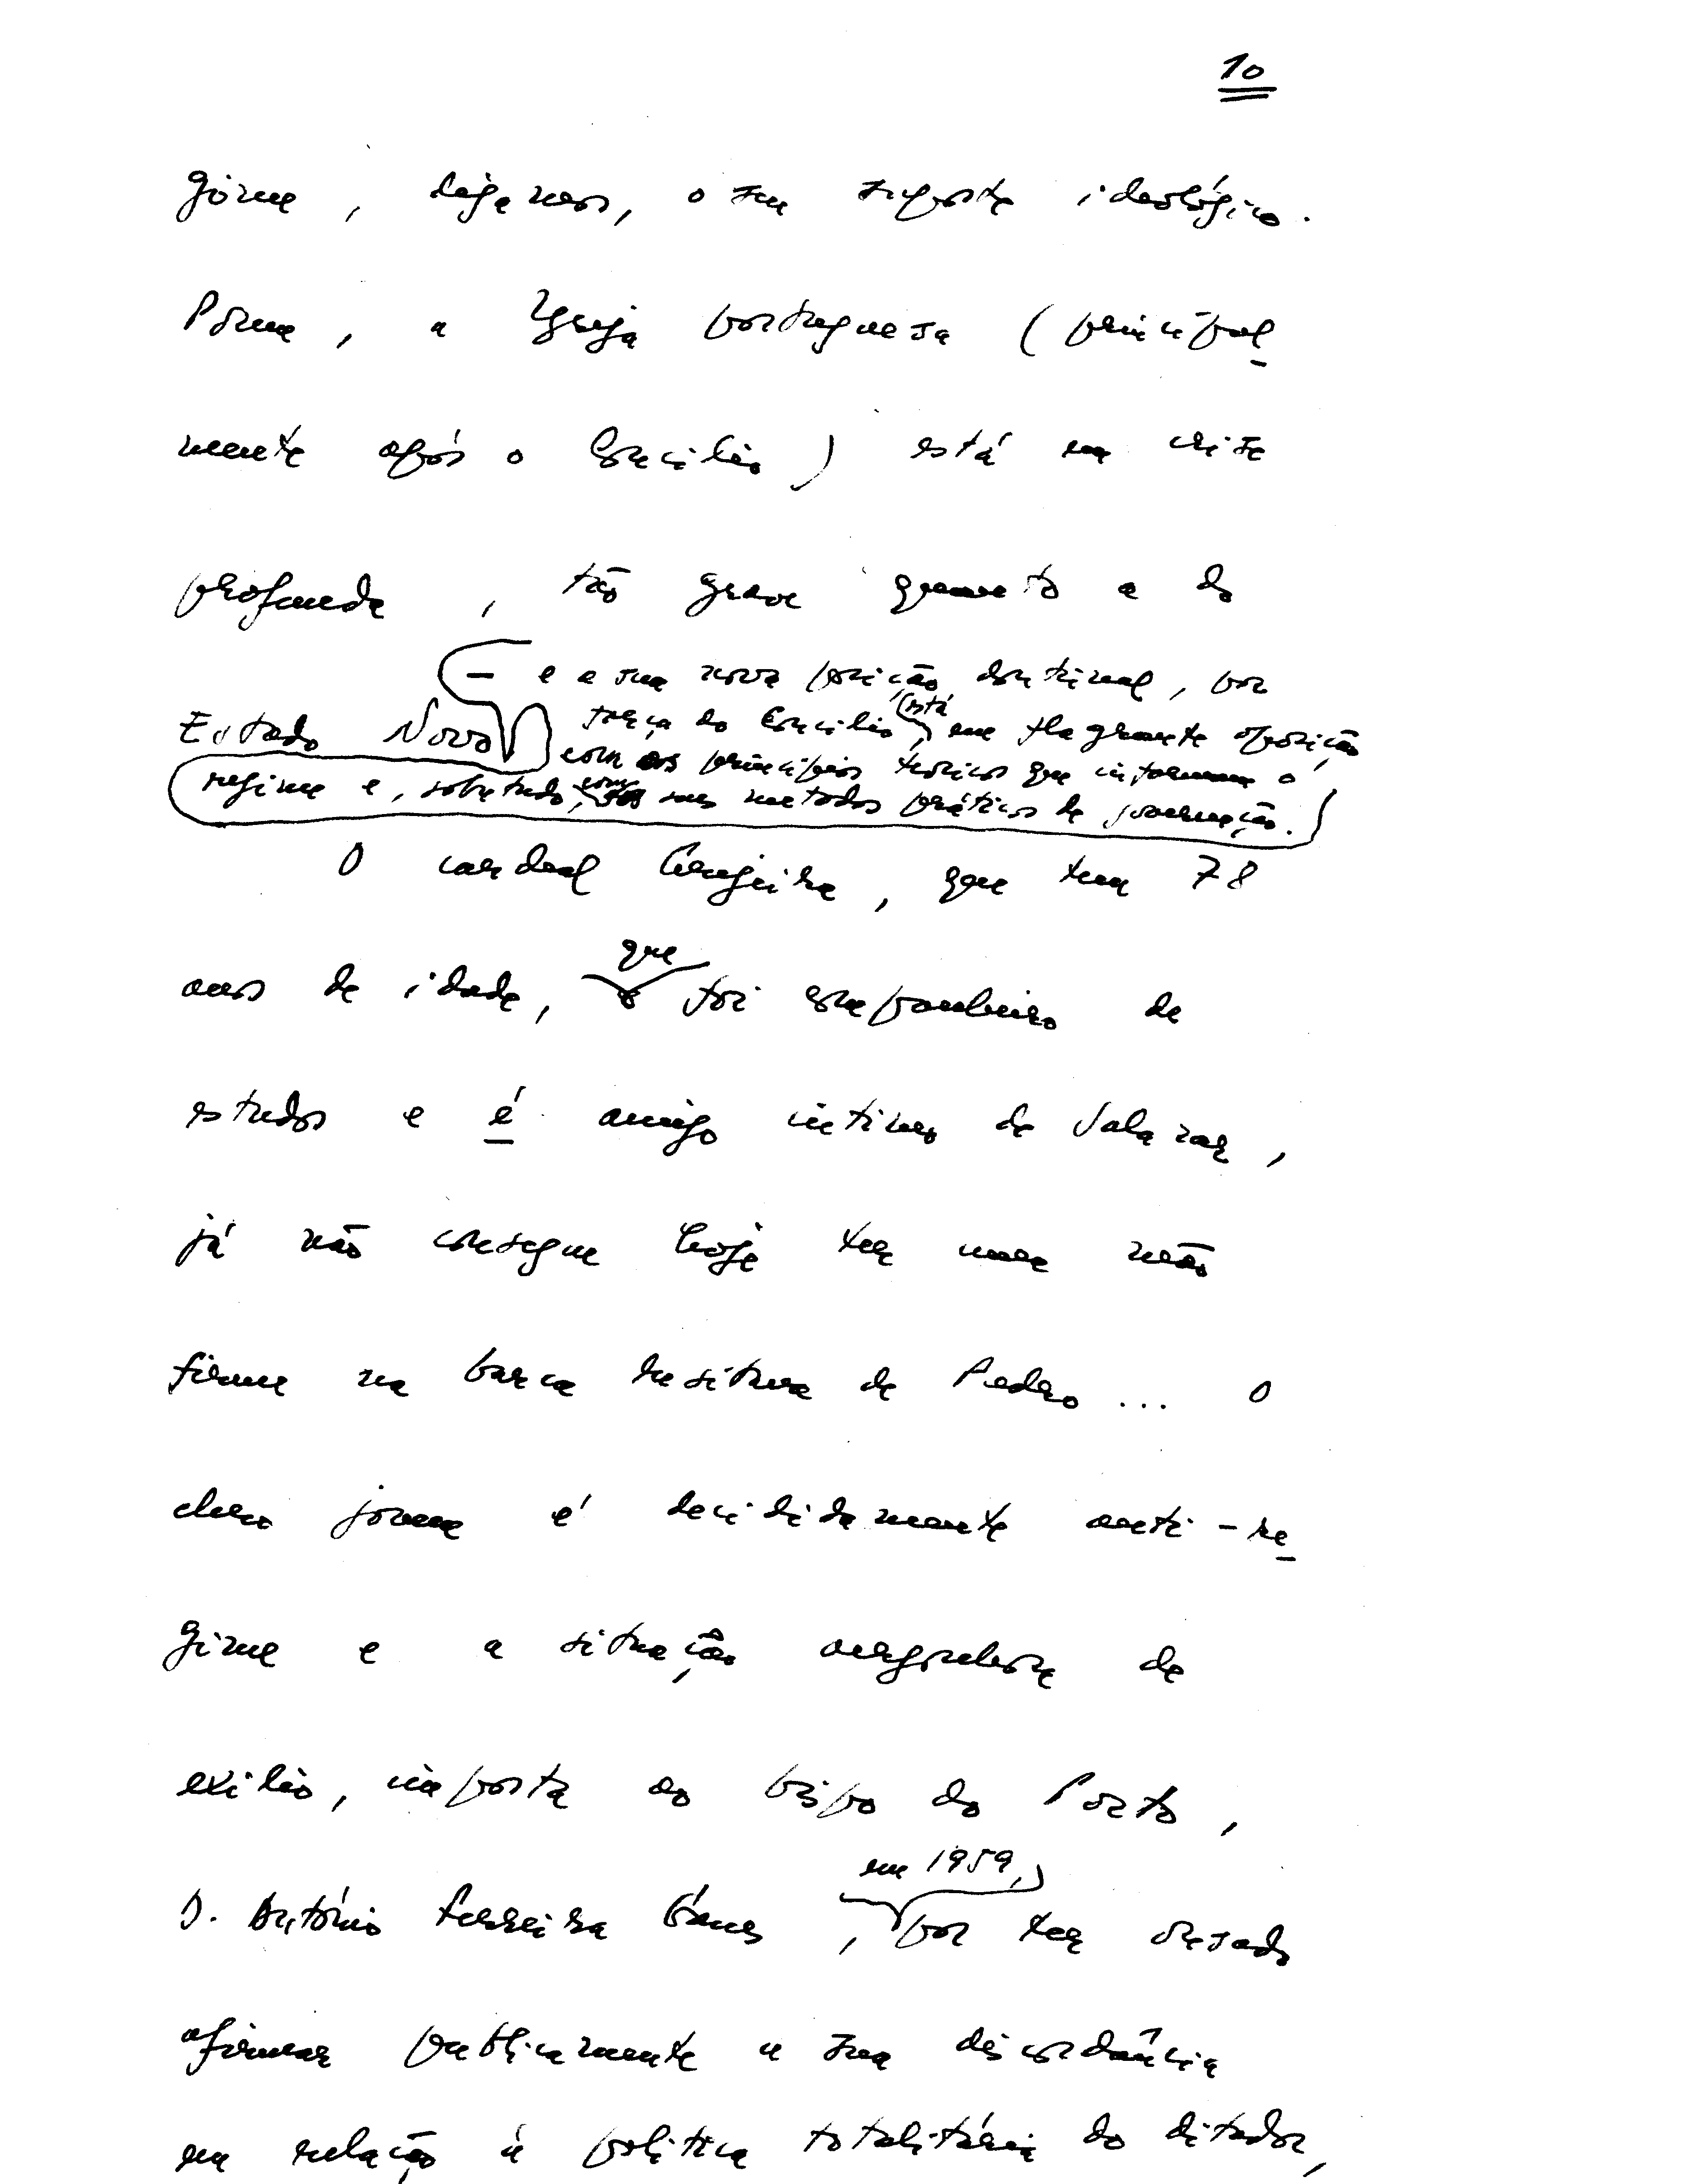 10
gime, digamos, o seu suporte ideológico.
Porém, a Igreja portuguesa (principal-
mente após o Concílio) está em crise
profunda, tão grave quanto a do
— e a sua nova posição doutrinal, por
Estado Novo força do Concílio, está em flagrante oposição
com os princípios teóricos que informam o
regime e, sobretudo, com seus metodos práticos de governação.
O cardeal Cerejeira, que tem 78
anos de idade, que foi companheiro de
estudos e é amigo intimo de Salazar,
já não consegue hoje ter uma mão
firme na barca lusitana de Pedro... O
clero jovem é decididamente anti-re-
gime e a situação vergonhosa de
exilio, imposta ao bispo do Porto,
em 1959,
D. António Ferreira Gomes, por ter ousado
afirmar publicamente a sua discordância
em relação à politica totalitária do ditador,